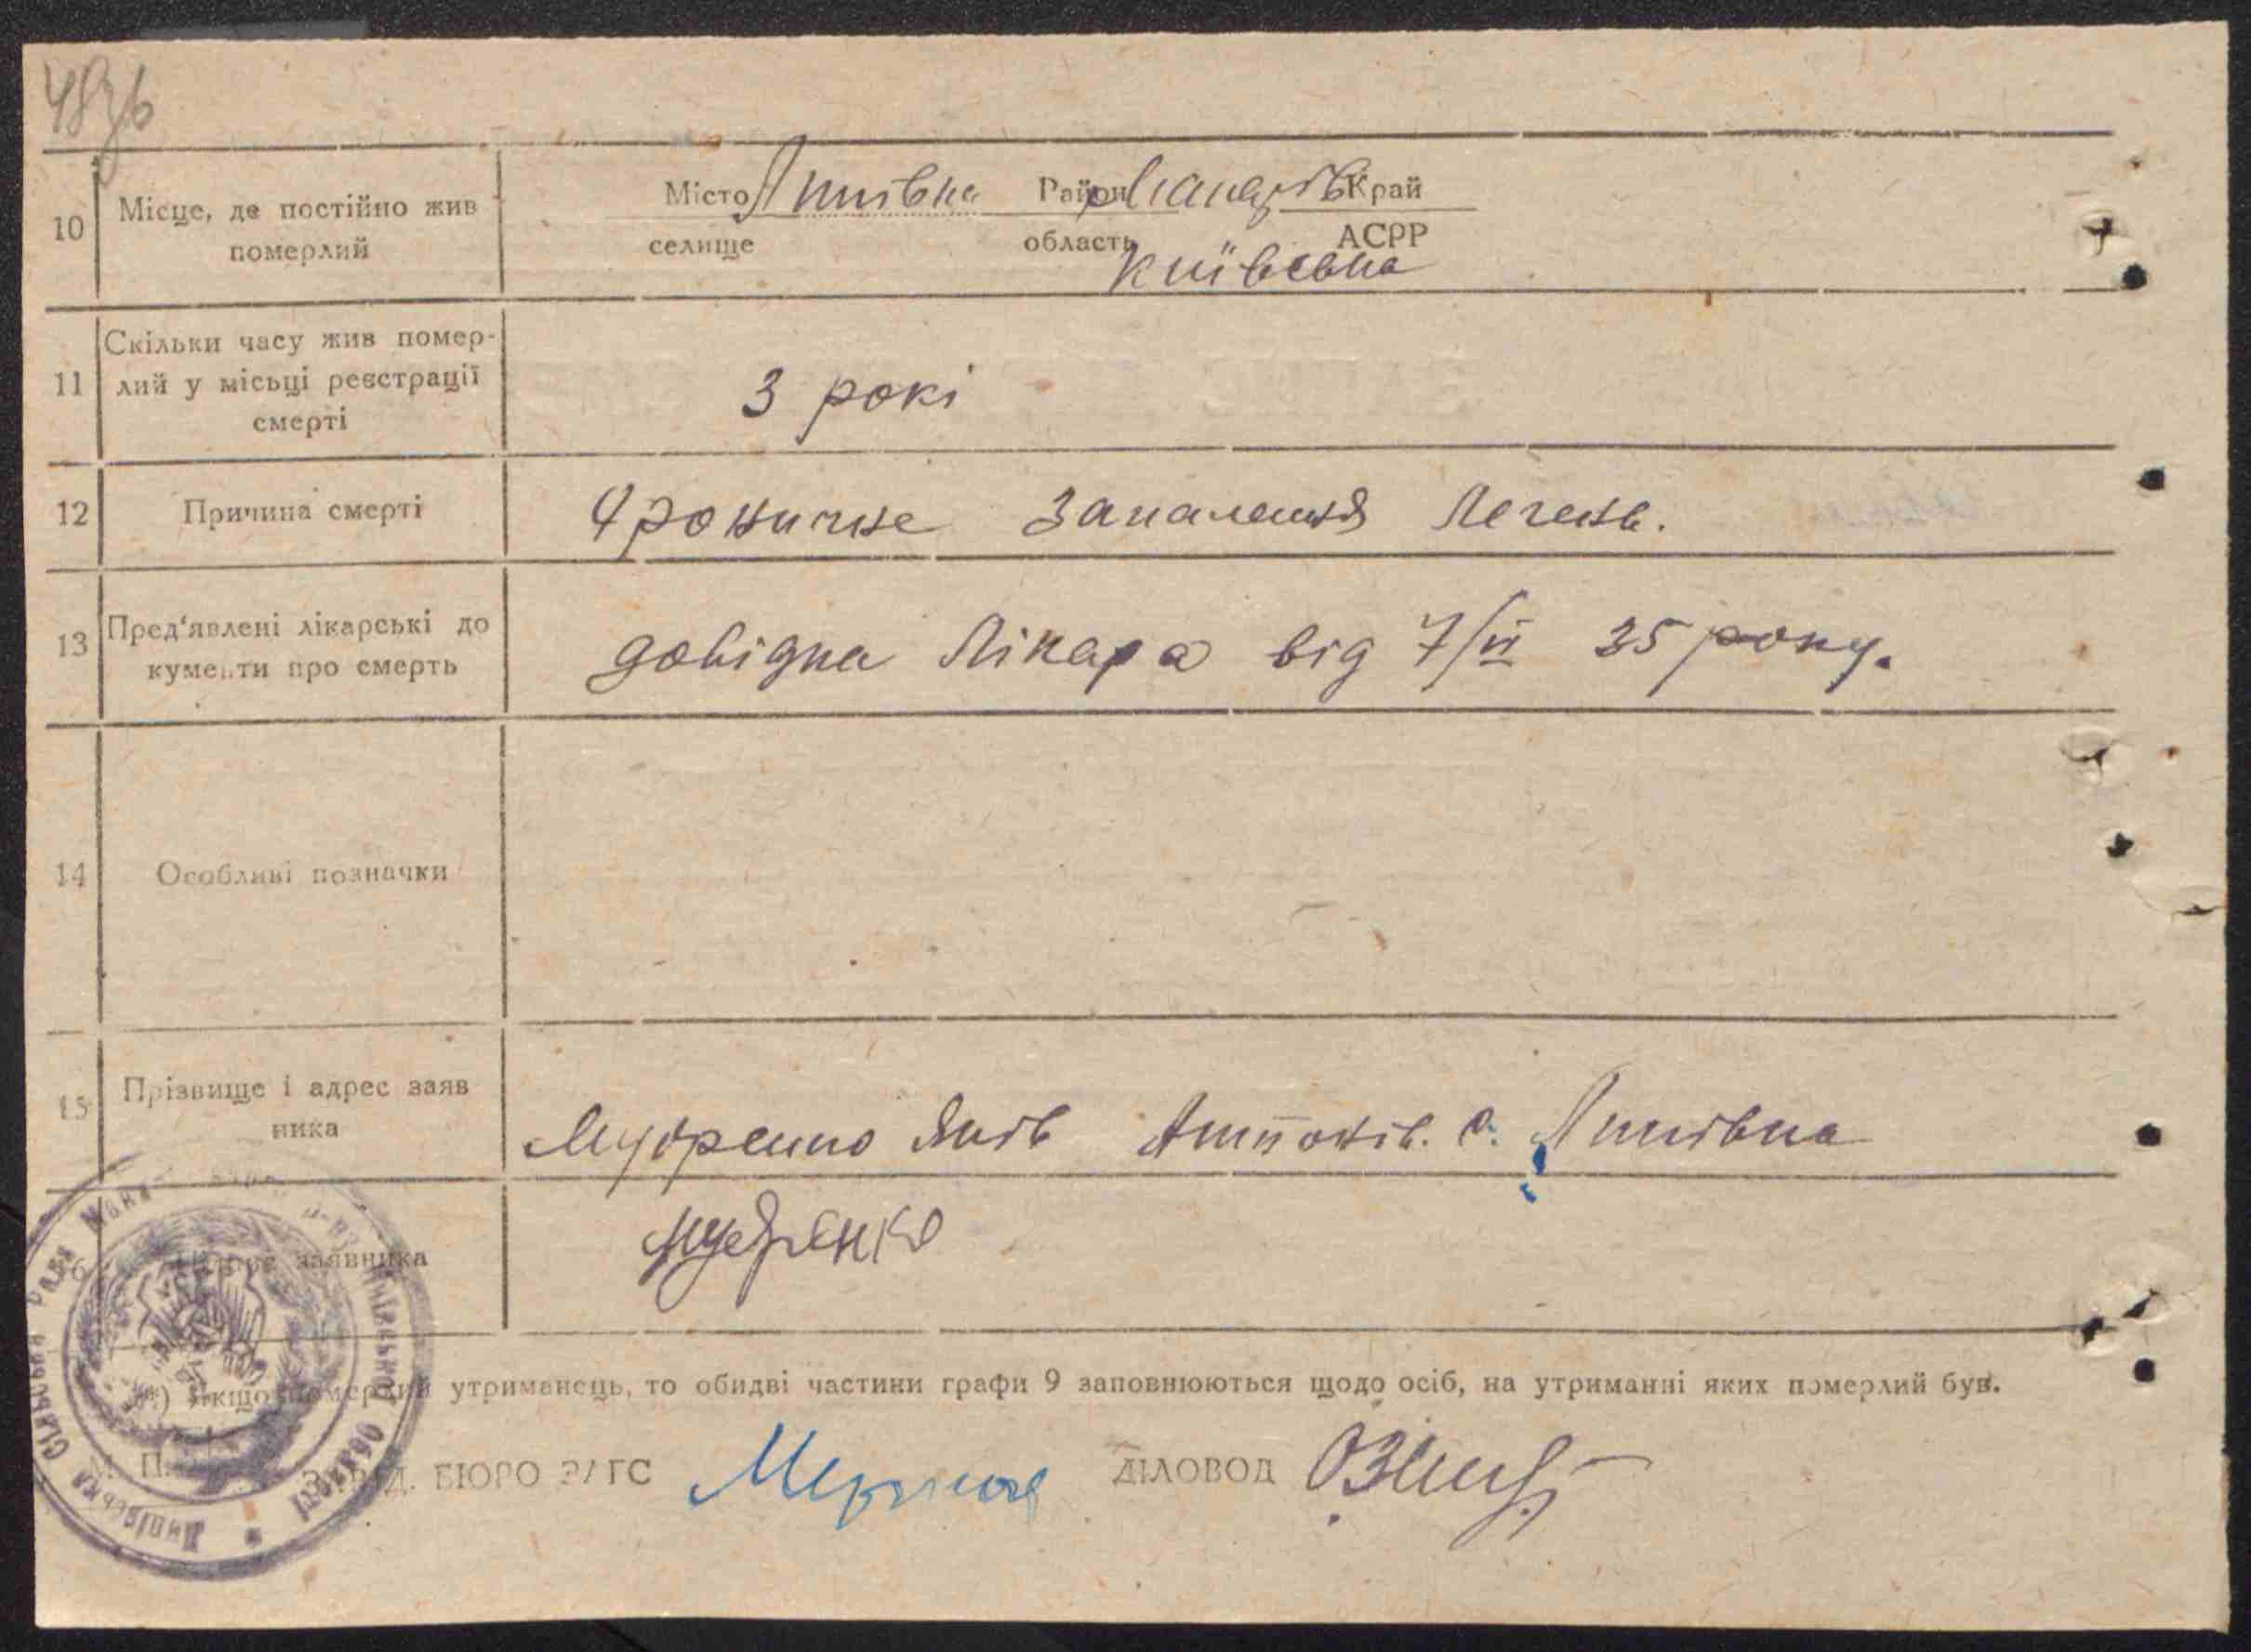 10 Місце, де постійно жив померлий
Місто Липівка Район Макарів Край
селище область АСРР
Київська
11 Скільки часу жив помер-
лий у місьці реєстрації
смерті
3 рокі
12 Причина смерті
Хроничне Запалення Легень.
13 Пред'явлені лікарські до
кументи про смерть
довідка Лікара від 7/VI 35 року.
14 Особливі позначки
15 Прізвище і адрес заяв
ника
Мудренко Яків с. Липівка
заявника
Мудренко
*) Якщо померлий утриманець, то обидві частини графи 9 заповнюються щодо осіб, на утриманні яких померлий був.
М. П. ЗАВІД. БЮРО ЗАГС ДІЛОВОД
Липівська Сільська Рада Київської Області